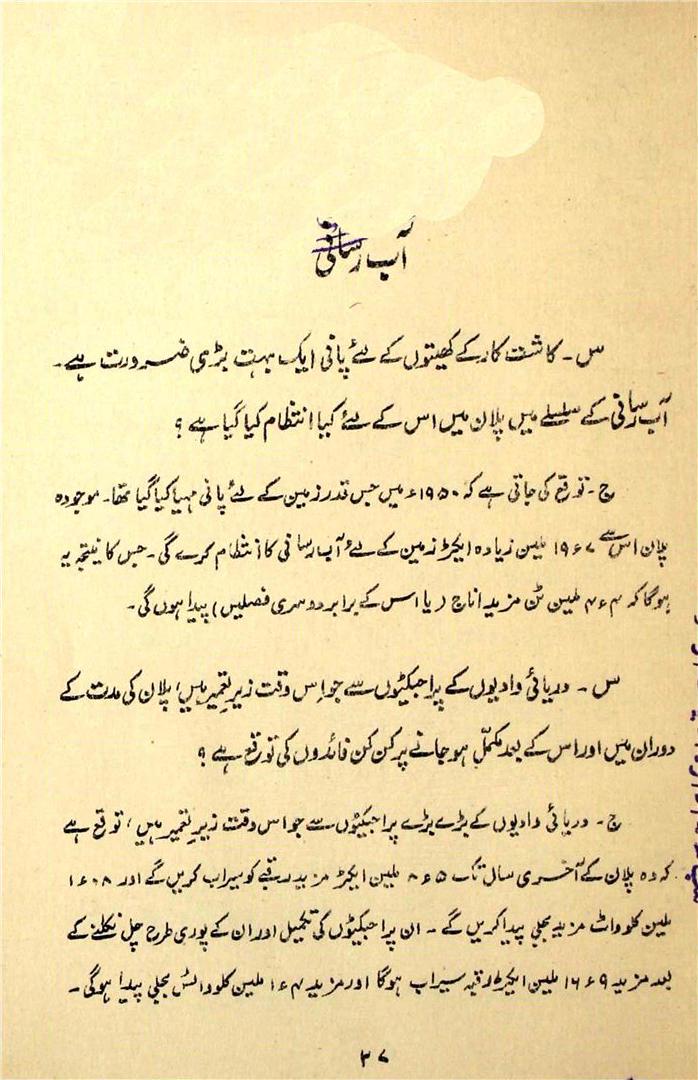 آب رسانی
س ۔ کاشت کار کے کھیتوں کے لئے پانی ایک بہت بڑی ضرورت ہے ۔
آب رسانی کے سلسلے میں پلان میں اس کے لئے کیا انتظام کیا گیا ہے ؟
ج ۔ توقع کی جاتی ہے کہ ۱۹۵۰ء میں جس قدر زمین کے لئے پانی مہیا کیا گیا تھا۔ موجودہ
پلان اس سے ۱۹۶۷ ملین زیادہ ایکڑ زمین کے لئے آب رسانی کا انتظام کرے گی ۔ جس کا نتیجہ یہ
ہوگا کہ ۴ء۴ ملین ٹن مزید اناج (یا اس کے برابر دوسری فصلیں) پیدا ہوں گی ۔
س ۔ دریائی وادیوں کے پراجیکٹوں سے جو اِس وقت زیرِ تعمیر ہیں، پلان کی مدت کے
دوران میں اور اس کے بعد مکمّل ہو جانے پر کن کن فائدوں کی توقع ہے ؟
ج ۔ دریائی وادیوں کے بڑے بڑے پراجیکٹوں سے جو اس وقت زیرِ تعمیر ہیں، توقع ہے
کہ وہ پلان کے آخری سال تک ۸ء۵ ملین ایکڑ مزید رقبے کو سیراب کریں گے اور ۱ء۰۸
ملین کلوواٹ مزید بجلی پیدا کریں گے ۔ ان پراجیکٹوں کی تکمیل اور ان کے پوری طرح چل نکلنے کے
بعد مزید ۱۶ء۹ ملین ایکڑ رقبہ سیراب ہوگا اور مزید ۱ء۴ ملین کلوواٹ بجلی پیدا ہوگی ۔
۳۷